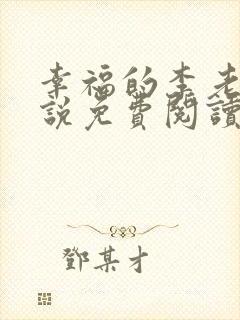 幸福的李老
說免費閱讀
鄧某才